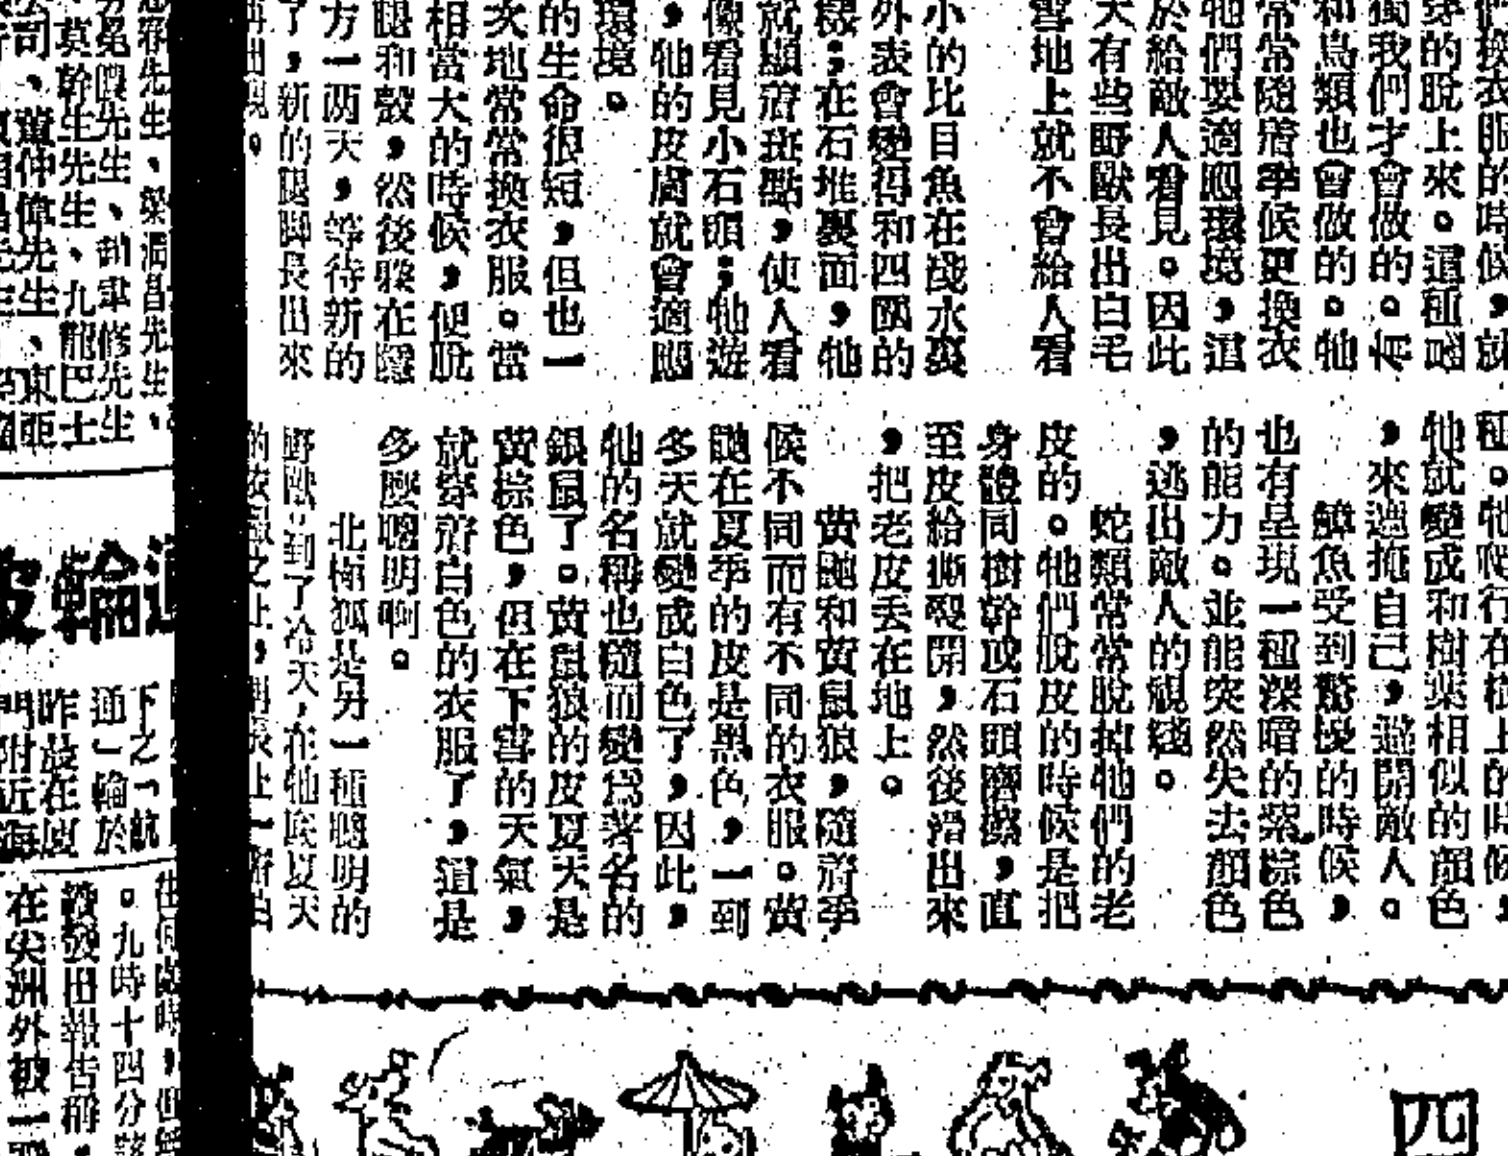 們換衣服的時候，就
穿的脫上來。這種
獨我們才會做的。有
和鳥類也會做的。牠
常常隨着季候更換衣
牠們要適應環境，這
於給敵人看見。因此
天有些野獸長出白毛
雪地上就不會給人看
小的比目魚在淺水裏
外表會變得和四圍的
樣；在石堆裏面，牠
就顯着斑點，使人看
像看見小石頭；牠遊
，牠的皮膚就會適應
環境。
的生命很短，但也一
次地常常換衣服。當
相當大的時候，便脫
腿和殼，然後躲在隱
方一兩天，等待新的
了，新的腿脚長出來
再出現。
種。牠爬行在樹上的時候，
牠就變成和樹葉相似的顏色
，來遮掩自己，避開敵人。
鱆魚受到驚擾的時候，
也有呈現一種深暗的紫棕色
的能力。並能突然失去顏色
，逃出敵人的視綫。
蛇類常常脫掉牠們的老
皮的。牠們脫皮的時候是把
身體同樹幹或石頭磨擦，直
至皮給撕裂開，然後滑出來
，把老皮丢在地上。
黄鼬和黄鼠狼，隨着季
候不同而有不同的衣服。黄
鼬在夏季的皮是黑色，一到
冬天就變成白色了，因此，
牠的名稱也隨而變爲著名的
銀鼠了。黄鼠狼的皮夏天是
黄棕色，但在下雪的天氣，
就穿着白色的衣服了，這是
多麽聰明啊。
北極狐是另一種聰明的
野獸，到了冷天，在牠底夏天
四
先生、梁潤昌先生、
莫幹生先生、九龍巴士
公司、董仲偉先生、東亞
通輪
下之一航
通」輪於
昨故在厦
門附近海
。九時十四分
發田報告稱，
在尖洲外被一